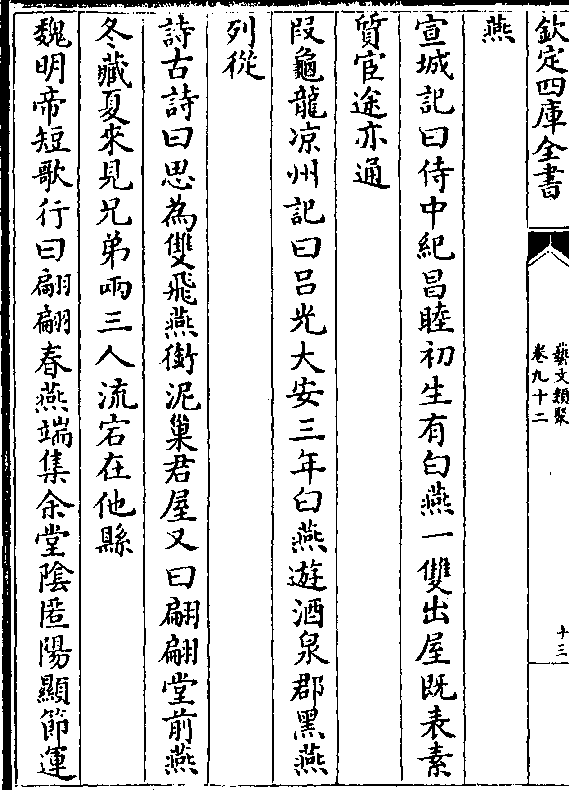 欽定四庫全書
藝文類聚
卷九十二
十三
燕
宣城記曰侍中紀昌睦初生有白燕一雙出屋既表素
質宦途亦通
段龜龍凉州記曰呂光大安三年白燕遊酒泉郡黑燕
列從
詩古詩曰思為雙飛燕銜泥巢君屋又曰翩翩堂前燕
冬藏夏來見兄弟兩三人流宕在他縣
魏明帝短歌行曰翩翩春燕端集余堂陰匿陽顯節運